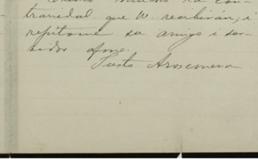 trariedal que U. recibirán, i
repítome su amigo i ser-
afmo.
Justo Arosemena